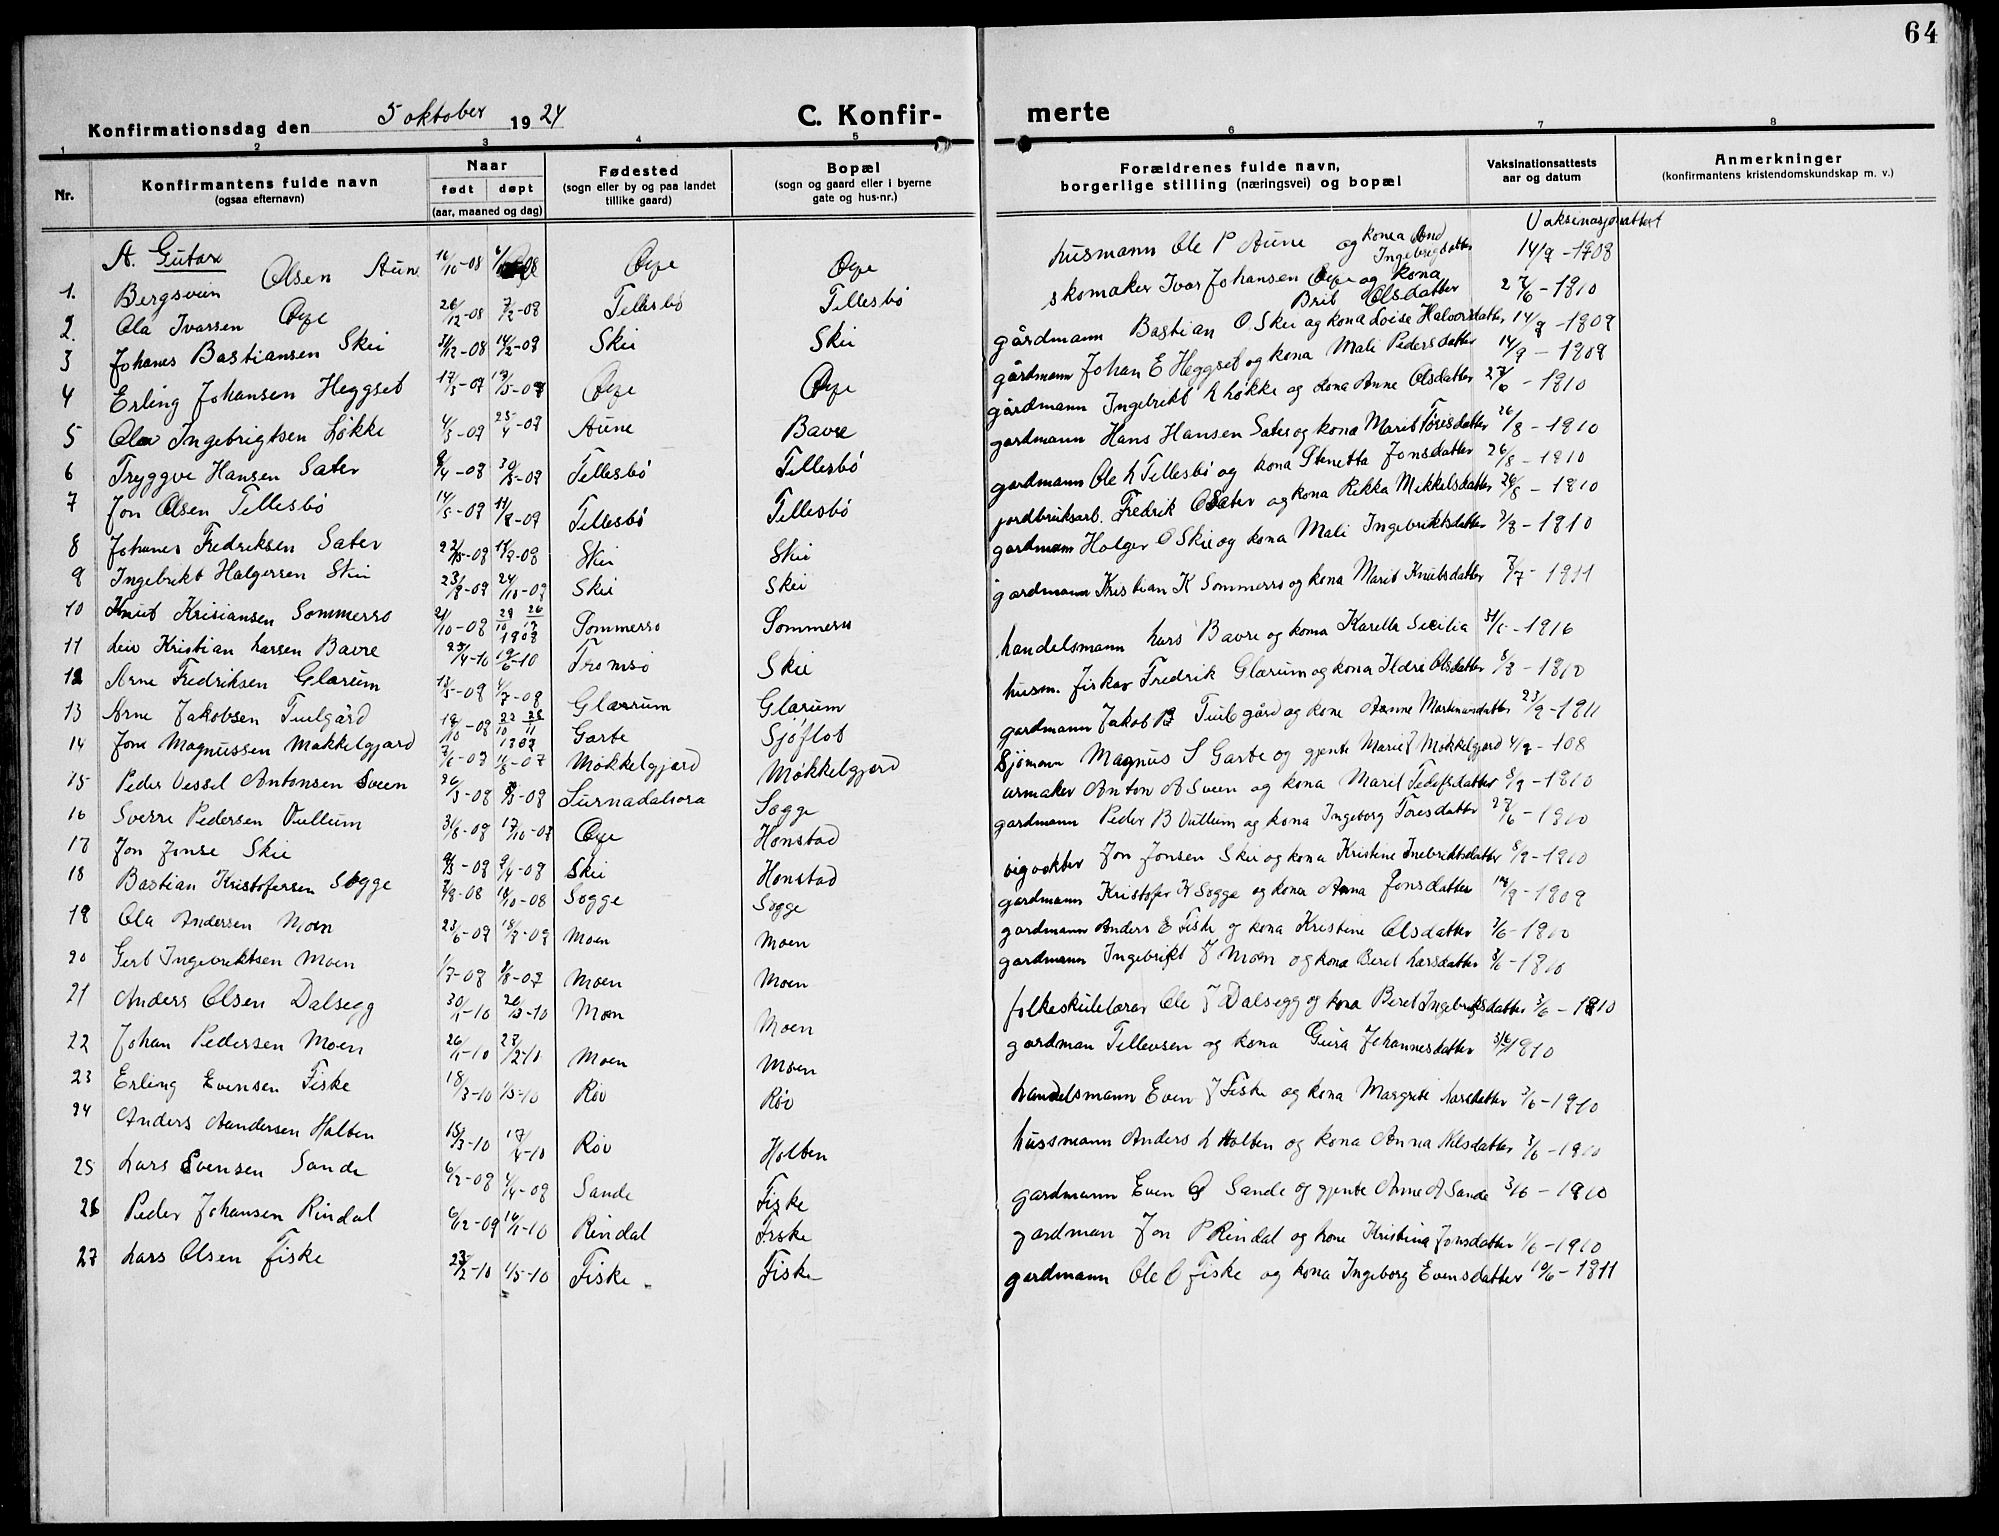 64
Konfirmationsdag den 5 oktober 1924
C. Konfir-
merte
1 2 3 4 5 6 7 8
Nr.
Konfirmantens fulde navn
(ogsaa efternavn)
Naar
født døpt
(aar, maaned og dag)
Fødested
(sogn eller by og paa landet
tillike gaard)
Bopæl
(sogn og gaard eller i byerne
gate og hus-nr.)
Forældrenes fulde navn,
borgerlige stilling (næringsvei) og bopæl
Vaksinationsattests
aar og datum
Anmerkninger
(konfirmantens kristendomskundskap m. v.)
A. Gutar
1. Bergsvein Olsen Aune 16/10-08 Øye Øye husmann Ole P Aune og kona Ingebrigtsdatter 14/9-1908
2. Ola Ivarsen Øye 26/12-08 7/2-09 Tellesbø Tellesbø skomaker Ivar Johansen Øye og kona Brit Olsdatter 27/6-1910
3 Johanes Bastiansen Skei 31/12-08 14/2-09 Skei Skei gårdmann Bastian O. Skei og kona Loise Halvorsdatter 14/9-1909
4 Erling Johansen Heggset 17/5-09 Øye Øye gårdmann Johan E Heggset og kona Mali Pedersdatter 14/9-1909
5 Ola Ingebrigtsen Løkke 4/3-09 25/4-09 Aune Bavre gårdmann Ingebrikt L Løkke og kona Anne Olsdatter 27/6-1910
6 Tryggve Hansen Sæter 9/4-09 30/5-09 Tellesbø Tellesbø gardmann Hans Hansen Sæter og kona Marit Toresdatter 26/8-1910
7 Jon Olsen Tellesbø 14/5-09 11/7-09 Tellesbø Tellesbø gardmann Ole L Tellesbø og kona Stenetta Jonsdatter 26/8-1910
8 Johanes Fredriksen Sæter Skei Skei jordbruksarb. Fredrik O Sæter og kona Rikka Mikkelsdatter 26/8-1910
9 Ingebrikt Halgersen Skei 23/8-09 24/10-09 Skei Skei gardmann Holger O Skei og kona Mali Ingebriktsdatter 3/8-1910
10 Knut Krisiansen Sommerro 21/10-09 Sommerro Sommerro gårdmann Kristian K Sommerro og kona Marit Knutsdatter 7/7-1911
11 Leiv Kristian Larsen Bavre 23/4-10 19/6-10 Tromsø Skei handelsmann Lars Bavre og kona Karella Secilia 31/5-1916
12 Arne Fredriksen Glærum 13/5-09 4/7-09 Glærrum Glærum husm. fisker Fredrik Glærum og kona Ildri Olsdatter 8/8-1910
13 Arne Jakobsen Tuilgård Garte Sjøflot gardmann Jakob B Tuilgård og kone Anne Martinusdatter 23/9-1911
14 Jone Magnussen Møkkelgjærd Møkkelgjærd Møkkelgjærd Sjømann Magnus S Garte og gjente Marie J Møkkelgjærd
15 Peder Vessel Antonsen Sveen 26/3-09 Surnadalsøra Søgge urmaker Anton A Sveen og kona Maret 8/9-1910
16 Sverre Pedersen Vullum 31/8-09 17/10-09 Øye Honstad gardmann Peder B Vullum og kona Ingeborg Toresdatter 27/6-1910
17 Jon Jonse Skei 9/3-09 9/4-09 Skei Honstad Jon Jonsen Skei og kona Kristine Inebriktsdatter 8/9-1910
18 Bastian Kristofersen Søgge 7/9-08 18/10-08 Søgge Søgge gardmann Kristofer K Søgge og kona Anna Jonsdatter 14/9-1909
19 Ola Andersen Moen 23/6-09 Moen Moen gardmann Anders E Fiske og kona Kristine Olsdatter 3/6-1910
20 Sert Ingebriktsen Moen 1/7-09 Moen Moen gardmann Ingebrikt J Moen og kona Beret Larsdatter 3/6-1910
21 Anders Olsen Dalsegg 30/1-10 Moen Moen folkeskulelærar Ole J Dalsegg og kona Beret Ingebriksdatter 3/6-1910
22 Johan Pedersen Moen 26/1-10 27/2-10 Moen Moen gardman Tellevsen og kona Gura Johannesdatter 3/6 1910
23 Erling Evensen Fiske 18/3-10 1/5-10 Røv Røv handelsmann Even J Fiske og kona Margrete Larsdatter 3/6-1910
24 Anders Aandersen Holten 15/3-10 17/4-10 Røv Holten hussmann Anders L Holten og kona Anna Nilsdatter 3/6-1910
25 Lars Evensen Sande 6/2-09 4/4-09 Sande Fiske gardmann Even Sande og gjente Anne A Sande 3/6-1910
26 Peder Johansen Rindal 6/12-09 16/1-10 Rindal Fiske gardman Jon P Rindal og kone Kristina Jonsdatter 1/6-1910
27 Lars Olsen Fiske 23/2-10 1/5-10 Fiske Fiske gardmann Ole O Fiske og kona Ingeborg Evensdatter 10/6-1911